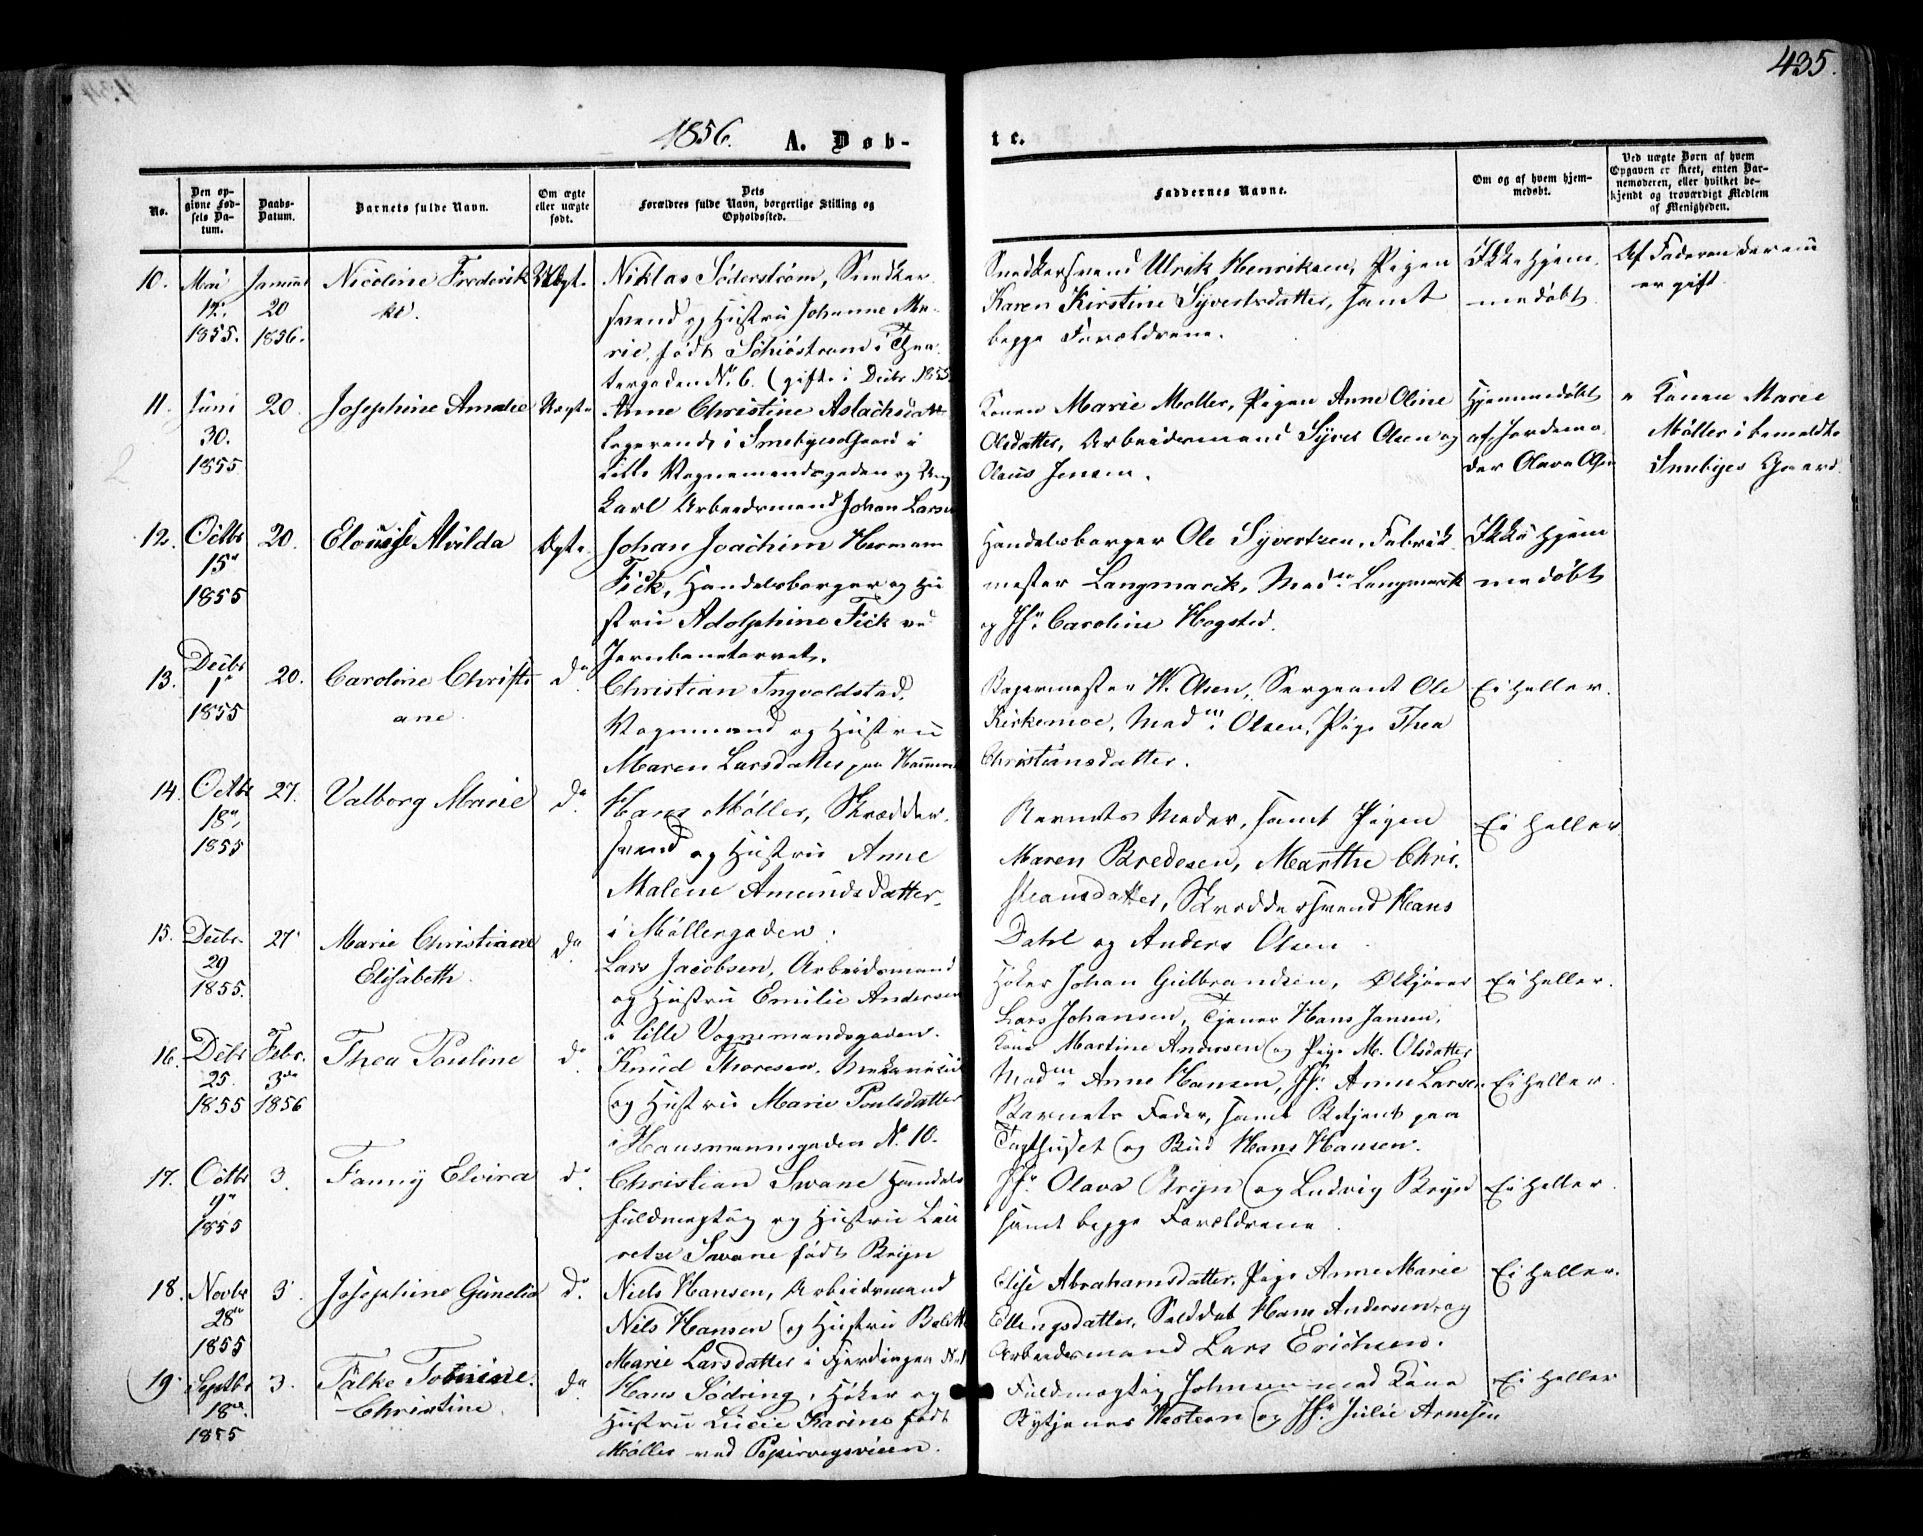 435.
1856. A. Døb-
te.
No.
Den op-
givne Fød-
sels Da-
tum.
Daabs-
Datum.
Barnets fulde Navn.
Om ægte
eller uægte
født.
Dets
Forældres fulde Navn, borgerlige Stilling og
Opholdssted.
Faddernes Navne.
Om og af hvem hjem-
medøbt.
Ved uægte Børn af hvem
Opgaven er skeet, enten Bar-
nemoderen, eller hvilket be-
kjendt og troværdigt Medlem
af Menigheden.
10.
Mai
12.
1855.
Januar
20
1856.
Nicoline Frederik
ke.
Uægt.
Niklas Söderström, Snedker
svend og Hustru Johanne Ma-
rie, født Schiöström i Thea
tergaden N. 6. (gifte i Decbr. 1855
Snedkersvend Ulrik Henriksen, Pigen
Karen Kirstine Syvertsdatter, samt
begge Forældrene.
Ikke hjem
medøbt.
Af Faderen der nu
er gift.
11.
Juni
30.
1855
20.
Josephine Amalie
Uægte
Anne Christine Aslachsdatt
Logerende i Smebyes Gaard i
Lille Vognmandsgaden og Ung
karl Arbeidsmand Johan Larsen
Konen Marie Møller, Pigen Anne Oline
Olsdatter, Arbeidsmand Syver Olsen og
Olaus Jensen.
Hjemmedøbt
af Jordemo
der Olava Olsen
Konen Marie
Møller i bemeldte
Smebyes Gaard.
12.
Octbr
15
1855
20.
Elouise Alvilda
Ægte
Johan Joachim Hermann
Fick, Handelsborger og Hu
stru Adolphine Fick ved
Jernbanetorvet.
Handelsborger Ole Syvertsen, Fabrik
mester Langmarck, Mad. Langmarck
og Jfr. Caroline Hogsted.
Ikke hjem
medøbt
13.
Decbr
1
1855
20.
Caroline Christi
ane.
do.
Christian Ingvoldstad.
Vognmand og Hustru
Maren Larsdatter paa Hammers
Bagermester H. Olsen, Sergeant Ole
Kirkemoe, Mad. Olsen, Pige Thea
Christiansdatter.
Ei heller.
14.
Octbr
18
1855
27.
Valborg Marie
do.
Hans Møller, Skrædder
svend og Hustru Anne
Malene Amundsdatter,
i Møllergaden.
Barnets Moder, samt Pigen
Maren Bredesen, Marthe Chri-
stiansdatter, Skræddersvend Hans
Dahl og Anders Olsen
Ei heller
15.
Decbr.
29
1855.
27
Marie Christiane
Elisabeth.
do.
Lars Jacobsen, Arbeidsmand
og Hustru Emilie Andersen
i lille Vognmandsgaden.
Høker Johan Gulbrandsen, Ølkjører
Lars Johansen, Tjener Hans Jansen,
Kone Martine Andersen og Pige M. Olsdatter
Ei heller.
16.
Decbr
25.
1855
Febr.
3
1856
Thea Pouline
do.
Knud Thoresen, Mekanicus
og Hustru Marie Poulsdatter
i Hausmannsgaden N. 10.
Mad. Anne Hansen, Jfr. Anne Larsen
Barnets Fader, samt Betjent paa
Tugthuset og Bud Hans Hansen.
Ei heller.
17.
Octbr
9
1855
3.
Fanny Elvira
do.
Christian Swane Handels
fuldmægtig og Hustru Lau
retse Swane født Bryn
Jfr. Olava Bryn og Ludvig Bryn
samt begge Forældrene.
Ei heller.
18.
Novbr
28
1855
3.
Josephine Gunelia
do.
Niels Hansen, Arbeidsmand
Nils Hansen og Hustru
Marie Larsdatter i Fjerdingen N.
Elise Abrahamsdatter, Pige Anne Marie
Ellengsdatter, Soldat Hans Andersen og
Arbeidsmand Lars Erichsen.
Ei heller.
19.
Septbr
18
1855
3.
Falke
Christine.
do.
Hans Södring, Høker og
Hustru Lucie Karine født
Møller ved Papirsveien.
Fuldmægtig Johnsen med Kone
Western og Jfr. Julie Arnesen
Ei heller